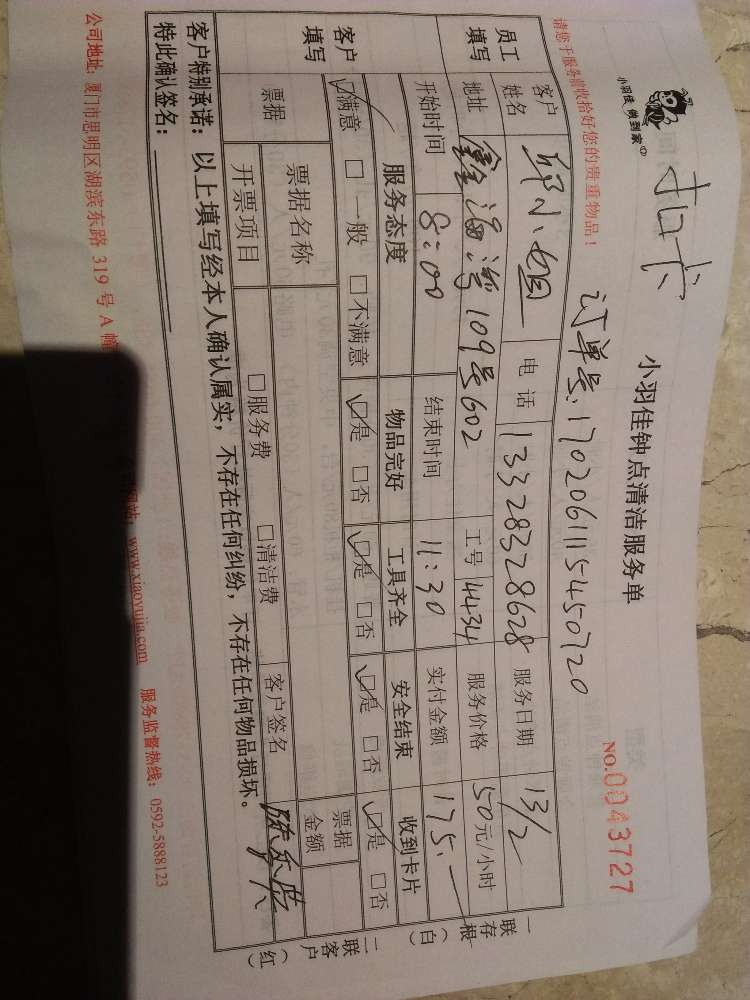 小羽佳 做到家
扣卡
小羽佳钟点清洁服务单
NO.0043727
请您于服务前收拾好您的贵重物品！
订单号:1702061115450720
员工填写
客户姓名 邱小姐 电话 13328328628 服务日期 13/2
地址 鑫海湾109号602 工号 4434 服务价格 50元/小时
开始时间 8:00 结束时间 11:30 实付金额 175.—
客户填写
服务态度 物品完好 工具齐全 安全结束 收到卡片
☑满意 □一般 □不满意 ☑是 □否 ☑是 □否 ☑是 □否 ☑是 □否
票据 票据名称 票据金额
开票项目 □服务费 □清洁费 客户签名
客户特别承诺：以上填写经本人确认属实，不存在任何纠纷，不存在任何物品损坏。
特此确认签名：
一联存根（白）
二联客户（红）
公司地址：厦门市思明区湖滨东路 319 号 A 幢
网站：www.xiaoyujia.com 服务监督热线：0592-5888123